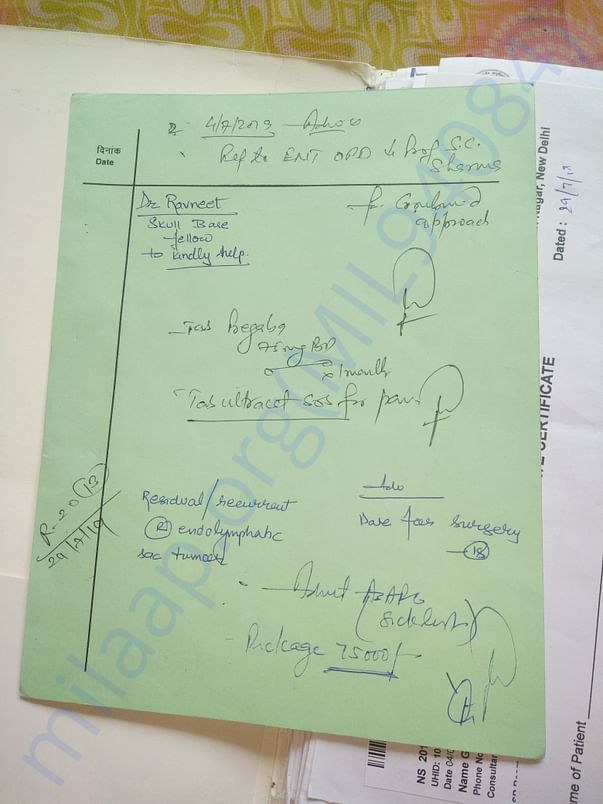 दिनांक
Date
4/7/2019
Ref to ENT OPD Prof S.C.
Sharma
Dr Ravneet
Skull Base
fellow
to kindly help.
for Combined
approach
75mg BD
x 1 month
Tab ultracet SOS for pain
R-20 (13)
29/7/19
Residual/recurrent
(R) endolymphatic
sac tumour
Adv
Date for surgery
(18)
Admit ASAP
Package 75000/-
Nagar, New Delhi
Dated : 29/7/19
TE CERTIFICATE
me of Patient
NS 201
UHID: 10
Date 04/0
Name G
Phone No
Consultan
milaap.org(MIL94084)